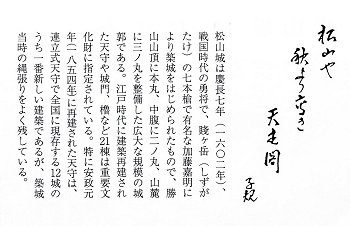 松山や
秋より高き
天主閣
子規
松山城は慶長七年（一六〇二年）、
戦国時代の勇将で、賤ヶ岳（しずが
たけ）の七本槍で有名な加藤嘉明に
より築城をはじめられたもので、勝
山山頂に本丸、中腹に二ノ丸、山麓
に三ノ丸を整備した広大な規模の城
郭である。江戸時代に建築再建され
た天守や城門、櫓など21棟は重要文
化財に指定されている。特に安政元
年（一八五四年）に再建された天守は、
連立式天守で全国に現存する12城の
うち一番新しい建築であるが、築城
当時の縄張りをよく残している。